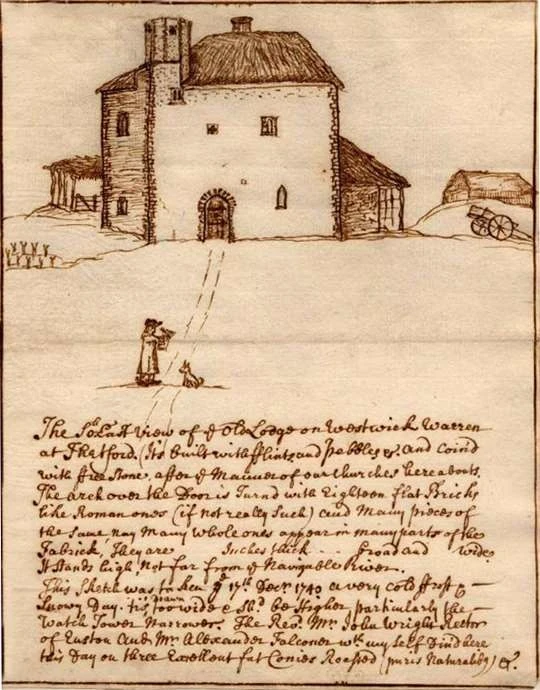 The So. East View of ye Old Lodge on Westwick Warren
at Thetford. (Its built with fflints and Pebbles &c. and Coin'd
with free Stone, after ye Manner of our Churches hereabouts.
The arch over the Door is Turnd with Eighteen flat Bricks
like Roman ones (if not really such) and Many pieces of
the same nay Many whole ones appear in many parts of the
Fabrick, They are Inches thick broad and wide
It stands high, Not far from ye Navigable River.
This Sketch was taken ye 17th. Decr. 1740 a very cold frost &
Snowy Day. tis drawn too wide & Shd. be Higher, particularly the
Watch Tower Narrower. The Revd. Mr. John Wright Rector
of Euston and Mr. Alexander Falconer wth. my self Din'd here
this Day on three Excellent fat Conies Roasted (puris Naturalibq) &c.